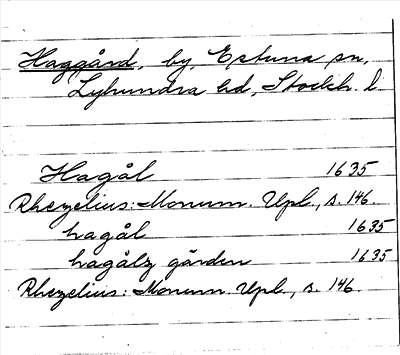 Haggård, by, Estuna sn,
Lyhundra hd, Stockh. l.
Hagål 1635
Rhezelius: Monum. Upl., s. 146.
hagål 1635
hagålz gården 1635
Rhezelius: Monum. Upl., s. 146